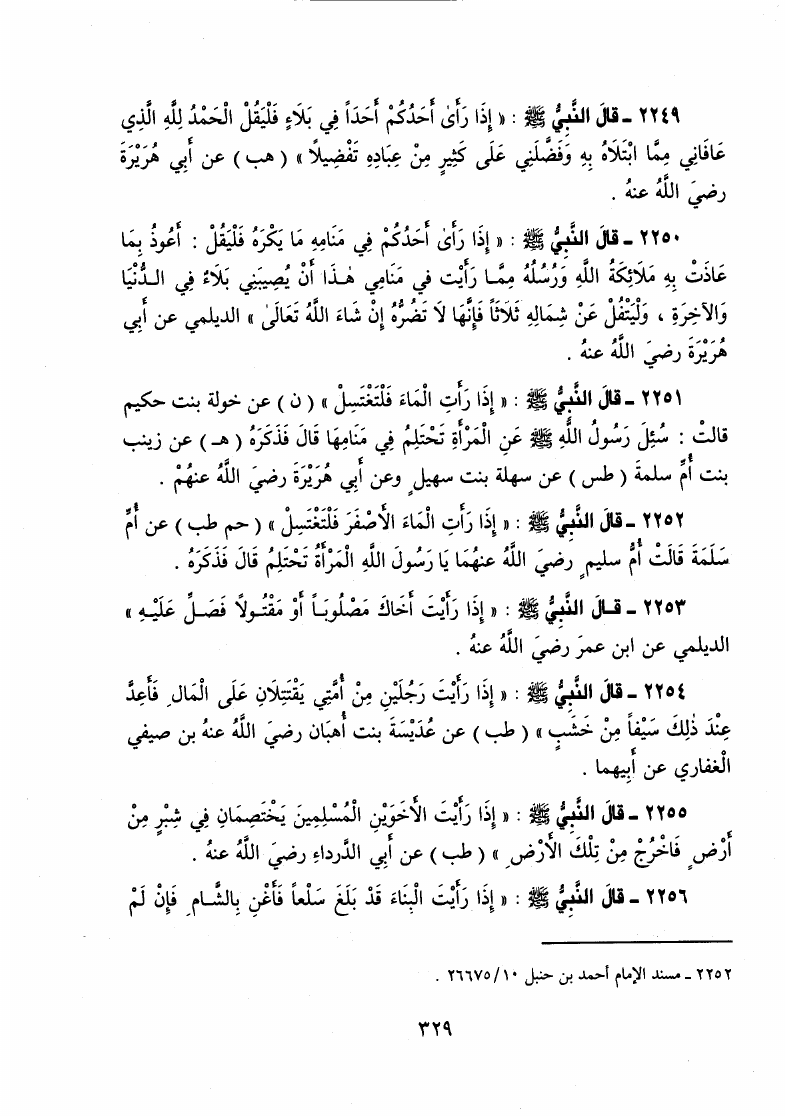 ٢٢٤٩ ـ قالَ النَّبِيُّ ﷺ : « إِذَا رَأَىٰ أَحَدُكُمْ أَحَدَاً فِي بَلَاءٍ فَلْيَقُلْ الْحَمْدُ لِلَّهِ الَّذِي
عَافَانِي مِمَّا ابْتَلَاهُ بِهِ وَفَضَّلَنِي عَلَى كَثِيرٍ مِنْ عِبَادِهِ تَفْضِيلًا » ( هب ) عن أَبِي هُرَيْرَةَ
رضيَ اللَّهُ عنهُ .
٢٢٥٠ ـ قالَ النَّبِيُّ ﷺ : « إِذَا رَأَىٰ أَحَدُكُمْ فِي مَنَامِهِ مَا يَكْرَهُ فَلْيَقُلْ : أَعُوذُ بِمَا
عَاذَتْ بِهِ مَلَائِكَةُ اللَّهِ وَرُسُلُهُ مِمَّا رَأَيْت في مَنَامِي هٰذَا أَنْ يُصِيبَنِي بَلَاءٌ فِي الدُّنْيَا
وَالآخِرَةِ ، وَلْيَتْفُلْ عَنْ شِمَالِهِ ثَلَاثَاً فَإِنَّهَا لَا تَضُرُّهُ إِنْ شَاءَ اللَّهُ تَعَالَىٰ » الديلمي عن أَبي
هُرَيْرَةَ رضيَ اللَّهُ عنهُ .
٢٢٥١ ـ قالَ النَّبِيُّ ﷺ : « إِذَا رَأَتِ الْمَاءَ فَلْتَغْتَسِلْ » ( ن ) عن خولة بنت حكيم
قالتْ : سُئِلَ رَسُولُ اللَّهِ ﷺ عَنِ الْمَرْأَةِ تَحْتَلِمُ فِي مَنَامِهَا قَالَ فَذَكَرَهُ ( هـ ) عن زينب
بنت أُمِّ سلمةَ ( طس ) عن سهلة بنت سهيلٍ وعن أَبِي هُرَيْرَةَ رضيَ اللَّهُ عنهُمْ .
٢٢٥٢ ـ قالَ النَّبِيُّ ﷺ : « إِذَا رَأَتِ الْمَاءَ الأَصْفَرَ فَلْتَغْتَسِلْ » ( حم طب ) عن أُمِّ
سَلَمَةَ قَالَتْ أُمُّ سليمٍ رضيَ اللَّهُ عنهُمَا يَا رَسُولَ اللهِ الْمَرْأَةُ تَحْتَلِمُ قَالَ فَذَكَرَهُ .
٢٢٥٣ ـ قالَ النَّبِيُّ ﷺ : « إِذَا رَأَيْتَ أَخَاكَ مَصْلُوبَاً أَوْ مَقْتُولًا فَصَلِّ عَلَيْهِ »
الديلمي عن ابن عمرَ رضيَ اللَّهُ عنهُ .
٢٢٥٤ ـ قالَ النَّبِيُّ ﷺ : « إِذَا رَأَيْتَ رَجُلَيْنِ مِنْ أُمَّتِي يَقْتَتِلَانِ عَلَى الْمَالِ فَأَعِدَّ
عِنْدَ ذٰلِكَ سَيْفاً مِنْ خَشَبٍ » ( طب ) عن عُدَيْسَةَ بنت أُهبَان رضيَ اللَّهُ عنهُ بن صيفي
الْغفاري عن أَبيهما .
٢٢٥٥ ـ قالَ النَّبِيُّ ﷺ : « إِذَا رَأَيْتَ الأَخَوَيْنِ الْمُسْلِمِينَ يَخْتَصِمَانِ فِي شِبْرٍ مِنْ
أَرْضٍ فَاخْرُجْ مِنْ تِلْكَ الأَرْضِ » ( طب ) عن أَبي الدَّرداءِ رضيَ اللَّهُ عنهُ .
٢٢٥٦ ـ قالَ النَّبِيُّ ﷺ : « إِذَا رَأَيْتَ الْبِنَاءَ قَدْ بَلَغَ سَلْعاً فَأَغْنِ بِالشَّامِ فَإِنْ لَمْ
٢٢٥٢ ـ مسند الإمام أحمد بن حنبل ١٠/٢٦٦٧٥ .
٣٢٩